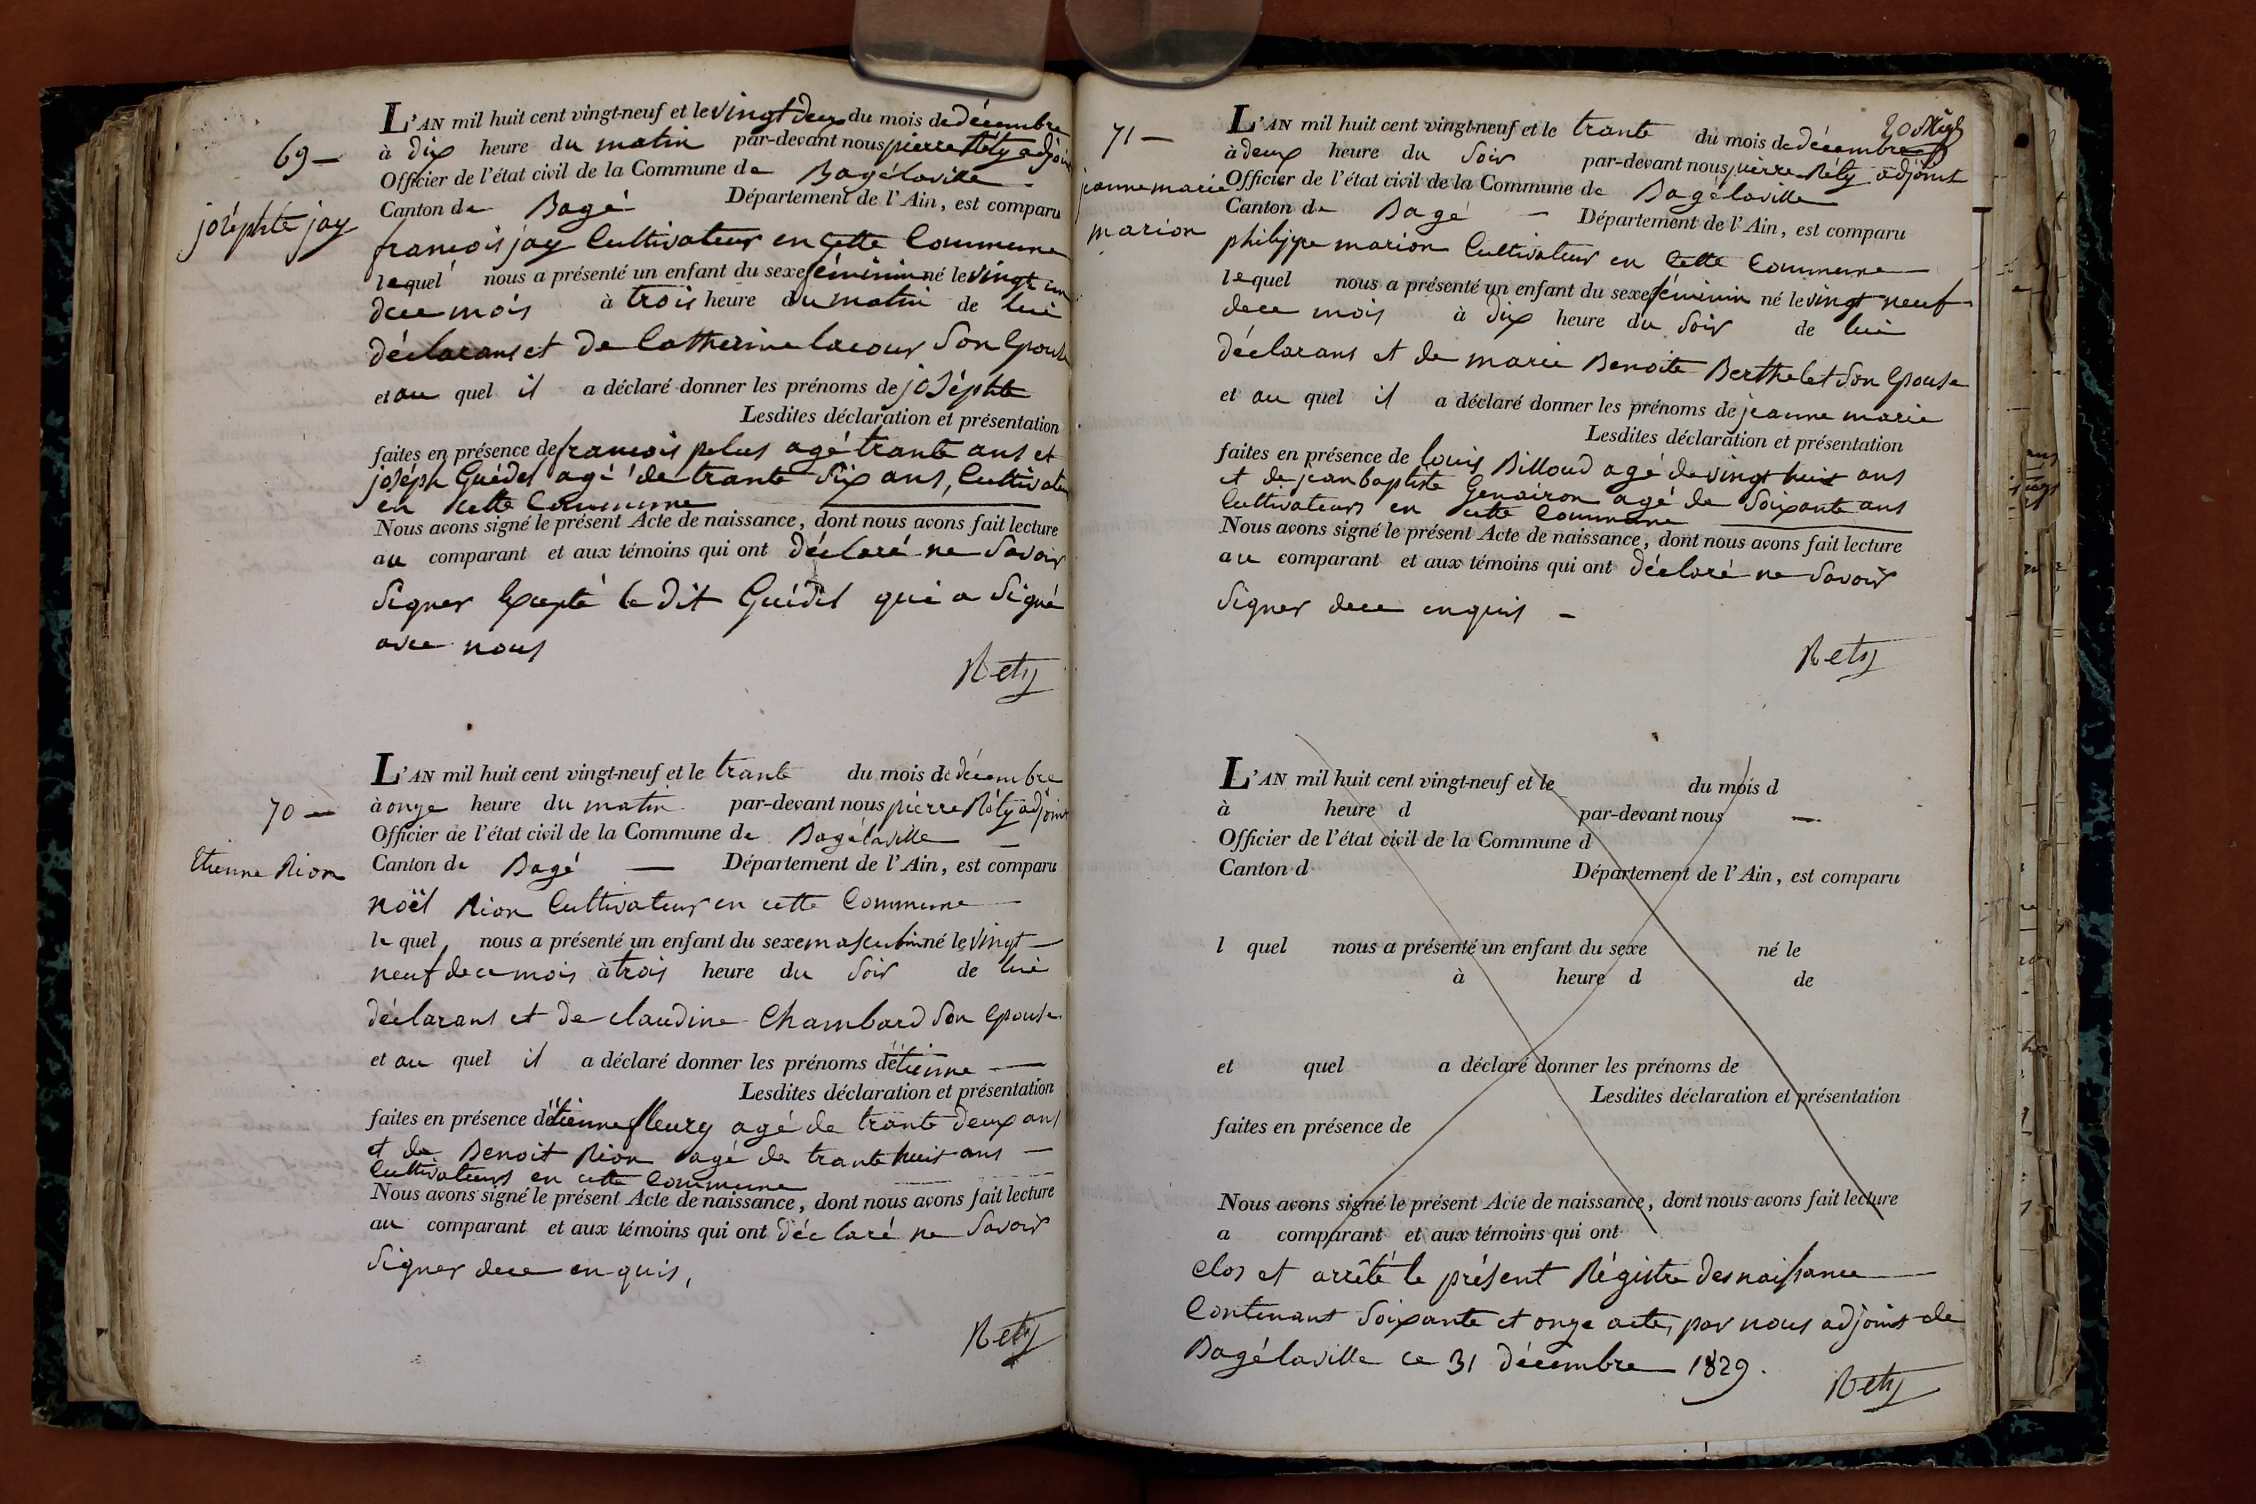 69 —
joséphte jay
L'AN mil huit cent vingt-neuf et le vingt deux du mois de décembre
à dix heure du matin par-devant nous pierre Réty adjoint
Officier de l'état civil de la Commune de Bagélaville
Canton de Bagé Département de l'Ain, est comparu
francois jay Cultivateur en cette Commune
lequel nous a présenté un enfant du sexe féminin né le vingt un
de ce mois à trois heure du matin de lui
déclarans et de Catherine lacour Son Epouse
et au quel il a déclaré donner les prénoms de joséphte
Lesdites déclaration et présentation
faites en présence de francois pelus agé trante ans et
joséph Guédel agé de trante Six ans, Cultivateur
en cette Commune
Nous avons signé le présent Acte de naissance, dont nous avons fait lecture
au comparant et aux témoins qui ont déclaré ne Savoir
Signer Excepté le dit Guédel qui a Signé
avec nous
Rety
70 —
Etienne Rion
L'AN mil huit cent vingt-neuf et le trante du mois de décembre
à onze heure du matin par-devant nous pierre Réty adjoint
Officier de l'état civil de la Commune de Bagélaville —
Canton de Bagé — Département de l'Ain, est comparu
noël Rion Cultivateur en cette Commune —
le quel nous a présenté un enfant du sexe masculin né le vingt —
neuf de ce mois à trois heure du Soir de lui
déclarans et de claudine Chambard Son Epouse
et au quel il a déclaré donner les prénoms détienne —
Lesdites déclaration et présentation
faites en présence détienne fleury agé de trante deux ans
et de Benoit Rion agé de trante huit ans —
Cultivateurs en cette Commune
Nous avons signé le présent Acte de naissance, dont nous avons fait lecture
au comparant et aux témoins qui ont déclaré ne Savoir
Signer de ce enquis,
Rety
71 —
jeanne marie
marion
L'AN mil huit cent vingt-neuf et le trante du mois de décembre
à deux heure du Soir par-devant nous pierre Réty adjoint
Officier de l'état civil de la Commune de Bagélaville
Canton de Bagé — Département de l'Ain, est comparu
philippe marion Cultivateur en Cette Commune —
lequel nous a présenté un enfant du sexe féminin né le vingt neuf
de ce mois à dix heure du Soir de lui
déclarans et de marie Benoite Berthelet Son Epouse
et au quel il a déclaré donner les prénoms de jeanne marie
Lesdites déclaration et présentation
faites en présence de louis Billoud agé de vingt huit ans
et de jean baptiste Genairon agé de Soixante ans
Cultivateurs en cette Commune
Nous avons signé le présent Acte de naissance, dont nous avons fait lecture
au comparant et aux témoins qui ont déclaré ne Savoir
Signer de ce enquis —
Rety
L'AN mil huit cent vingt-neuf et le du mois d
à heure d par-devant nous —
Officier de l'état civil de la Commune d
Canton d Département de l'Ain, est comparu
l quel nous a présenté un enfant du sexe né le
à heure d de
et quel a déclaré donner les prénoms de
Lesdites déclaration et présentation
faites en présence de
Nous avons signé le présent Acte de naissance, dont nous avons fait lecture
a comparant et aux témoins qui ont
Clos et arrêté le présent Régistre des naissance —
Contenant Soixante et onze acte, par nous adjoint de
Bagélaville ce 31 décembre 1829.
Rety